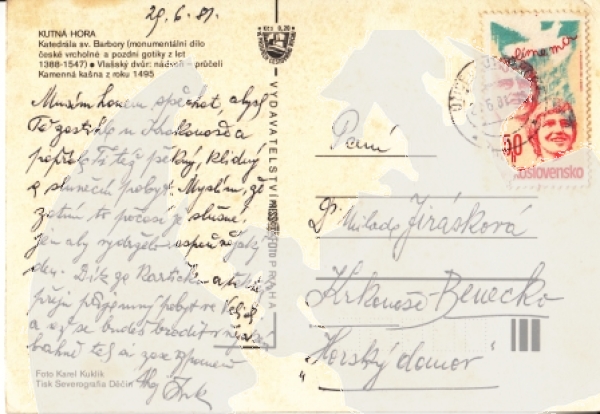 29.6.81.
KUTNÁ HORA
Katedrála sv. Barbory (monumentální dílo
české vrcholné a pozdní gotiky z let
1388-1547) • Vlašský dvůr: nádvoří – průčelí
Kamenná kašna z roku 1495
Kčs 0,20
VYDAVATELSTVÍ PRESSFOTO PRAHA
Musím honem spěchat, abych
Tě zastihl u Krkonoše a
popřál Ti též pěkný, klidný
a slunečný pobyt. Myslím, že
zatím to počasí je slušné.
Jen aby vydrželo aspoň nějaký
den. Díky za kartičku a také
přeji příjemný pobyt ve
a až se budeš brodit v
bahně
Paní
Dr Milada Jirásková
Krkonoše - Benecko
"Horský domov"
50
Československo
Foto Karel Kuklík
Tisk Severografia Děčín